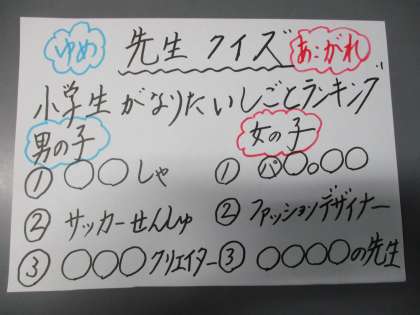 ゆめ 先生クイズ あこがれ
小学生がなりたいしごとランキング
男の子 女の子
① ○○しゃ ① パ○。○○
② サッカーせんしゅ ② ファッションデザイナー
③ ○○○クリエイター ③ ○○○○の先生